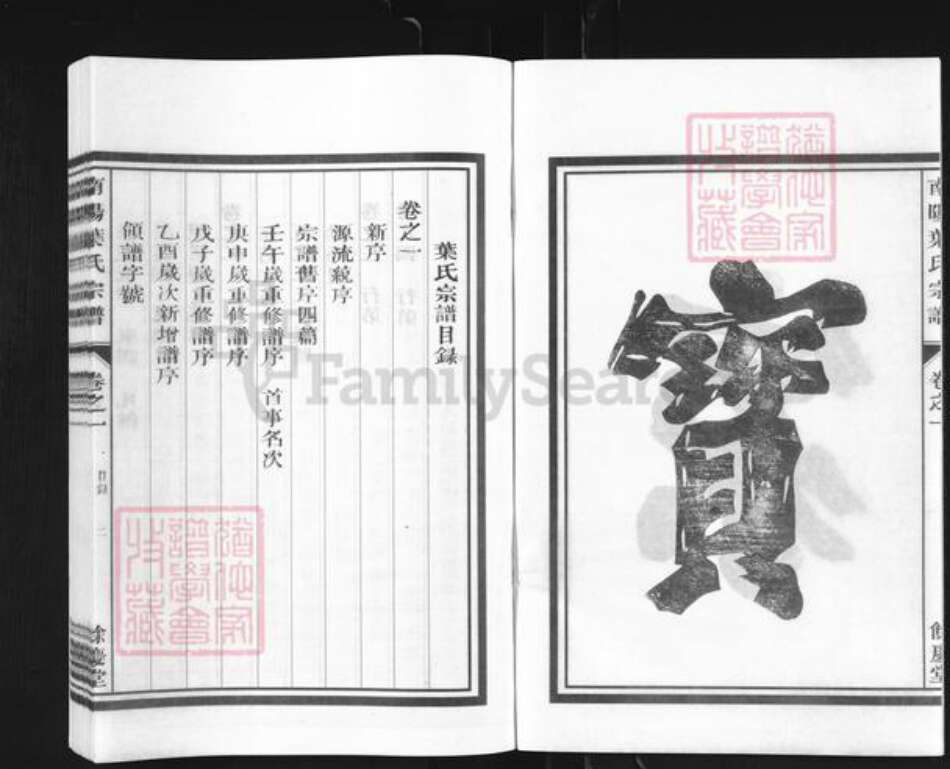 寶
南陽葉氏宗譜 卷之一
餘慶堂
葉氏宗譜目録
卷之一
新序
源流統序
宗譜舊序四篇
壬午歲重修譜序 首事名次
庚申歲重修譜序
戊子歲重修譜序
乙酉歲次新增譜序
領譜字號
南陽葉氏宗譜 卷之一 一 目録 二
餘慶堂
FamilySear
譜學會
收藏
譜學會
收藏